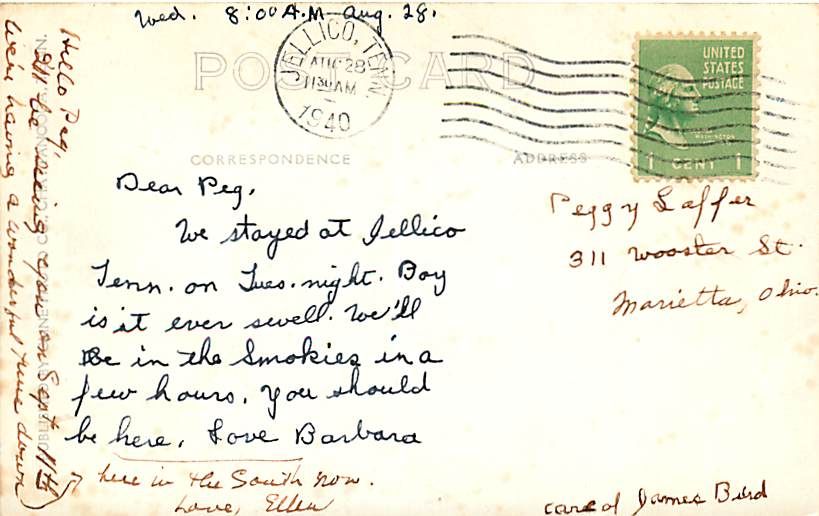 Wed. 8:00 A.M Aug. 28.
POST CARD
JELLICO, TENN.
AUG 28
11 30 AM
1940
UNITED
STATES
POSTAGE
WASHINGTON
1 CENT 1
CORRESPONDENCE
ADDRESS
Dear Peg,
We stayed at Jellico
Tenn. on Tues. night. Boy
is it ever swell. We'll
Be in the Smokies in a
few hours. You should
be here. Love Barbara
Peggy Laffer
311 Wooster St.
Marietta, Ohio.
care of James Bird
Hello Peg,
I'll be seeing you on Sept 11th
We're having a wonderful time down
here in the South now.
Love, Ellen